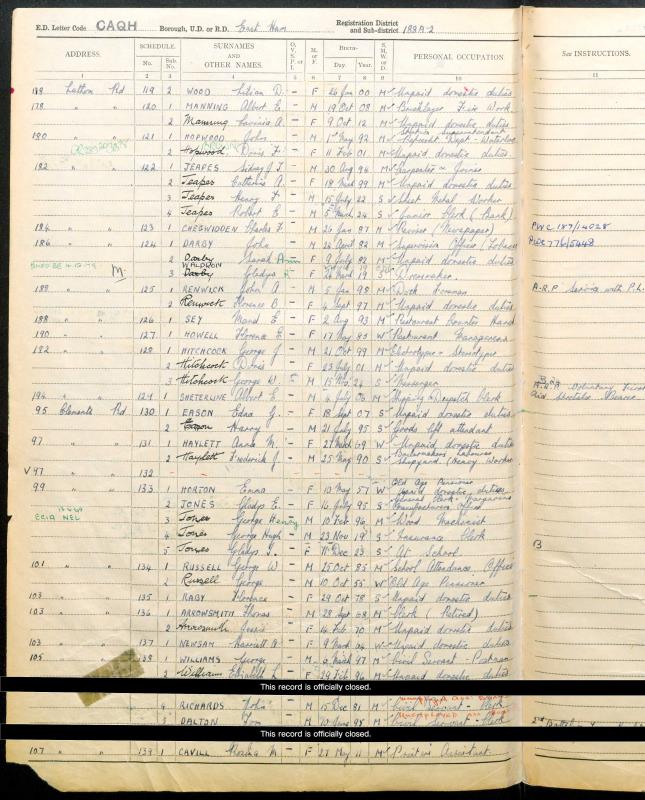 E.D. Letter Code CAQH Borough, U.D. or R.D. East Ham Registration District and Sub-district 188A-2
ADDRESS. SCHEDULE. SURNAMES AND OTHER NAMES. O. V. S. P. or I. M. or F. BIRTH- PERSONAL OCCUPATION See INSTRUCTIONS.
No. Sub. No. Day. Year. S. M. W. or D.
2 3 4 5 6 7 8 9 10 11
Lutton Rd 119 2 WOOD Lilian D. - F 26 Jan 00 M Unpaid domestic duties
178 " " 120 1 MANNING Albert E. - M 19 Oct 08 M Bricklayer
2 Manning Lavinia A. - F 9 Oct 12 M Unpaid domestic duties
121 1 HOPWOOD John - M 1st May 92 M
2 Hopwood Doris F. F 11 Feb 01 M Unpaid domestic duties
182 " " 122 1 JEAPES Sidney J. F. - M 30 Aug 96 M Carpenter & Joiner
2 Jeapes Catherine A. - F 18 M Unpaid domestic duties
3 Jeapes Henry F. - M 15 July 22 S Sheet Metal Worker
4 Jeapes Robert E. - M 5 March 24 S Junior Clerk (Bank)
184 " " 123 1 CHEGWIDDEN Charles F. - M 26 Jan 97 M (Newspaper)
PWC 187/14028
186 " " 124 1 DARBY John - M 26 April 92 M Supervision Officer
2 Darby Sarah Ann F 9 July 92 M Unpaid domestic duties
WALDRON
3 Darby Gladys F March 19 S Dressmaker
M.
125 1 RENWICK John A. - M 5 Jan 98 M Dock Foreman
A.R.P. Service with
2 Renwick Florence B. - F 4 Sept 97 M Unpaid domestic duties
188 " " 126 1 SEY Maud E. - F 2 Aug 93 M Restaurant Counter Hand
190 " " 127 1 HOWELL Florence E. - F 17 May W Restaurant Manageress
128 1 HITCHCOCK George J. - M 21 Oct 99 M
2 Hitchcock Doris - F 23 July 01 M Unpaid domestic duties
3 Hitchcock George W. M 15 24 S Messenger
194 " " 129 1 Albert E. - M 4 July 06 M Shipping & Despatch Clerk
95 Clements Rd 130 1 EASON Edna J. - F 18 Sept 07 S Unpaid domestic duties
2 Eason Harry - M 21 July 95 S Goods lift attendant
97 " " 131 1 HAYLETT Anna M. - F 27 March 69 W Unpaid domestic duties
2 Haylett Frederick J. - M 25 May 90 S Boilermakers Labourer Shipyard (Heavy Worker)
V 97 " " 132 -
99 " " 133 1 HORTON Emma - F 10 May 57 W Old Age Pensioner unpaid domestic duties
2 JONES Gladys E. - F 16 July 95 S
3 Jones George Henry M 10 Feb 96 M Wood Machinist
4 Jones George Hugh - M 23 Nov 19 S Insurance Clerk
5 Jones Gladys I. - F 11 Dec 23 S At School
B
101 " " 134 1 RUSSELL George W. - M 25 Oct 85 M School Attendance Officer
2 Russell George - M 10 Oct 55 W Old Age Pensioner
103 " " 135 1 RABY Florence - F 29 Oct 78 S Unpaid domestic duties
103 " " 136 1 ARROWSMITH Thomas - M 28 Sept 68 M Clerk (Retired)
2 Arrowsmith Jessie - F 16 Feb 70 M Unpaid domestic duties
103 " " 137 1 NEWSAM Harriett A. - F 9 March W Unpaid domestic duties
105 " " 138 1 WILLIAMS George - M 6 March 97 M Civil Servant - Postman
2 Williams Elizabeth L. - F 29 Feb 96 M Unpaid domestic duties
This record is officially closed.
4 RICHARDS John - M 15 Dec 81 M Civil Servant - Clerk
5 DALTON Tom - M 10 June 95 M Civil Servant - Clerk
This record is officially closed.
107 " " 139 1 CAVILL M - F 27 May 11 M Assistant